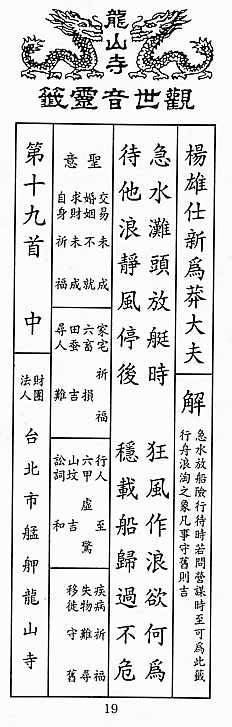 龍山寺
觀世音靈籤
楊雄仕新爲莽大夫
解
急水放船險行待時若問營謀時至可爲此籤
行舟浪淘之象凡事守舊則吉
急水灘頭放艇時 狂風作浪欲何爲
待他浪靜風停後 穩載船歸過不危
聖意
交易未成
婚姻不就
求財未成
自身祈福
家宅祈福
六畜損
田蚕吉
尋人難
行人至
六甲虛驚
山坟吉
訟詞和
疾病祈福
失物難尋
移徙守舊
第十九首 中
財團法人台北市艋舺龍山寺
19